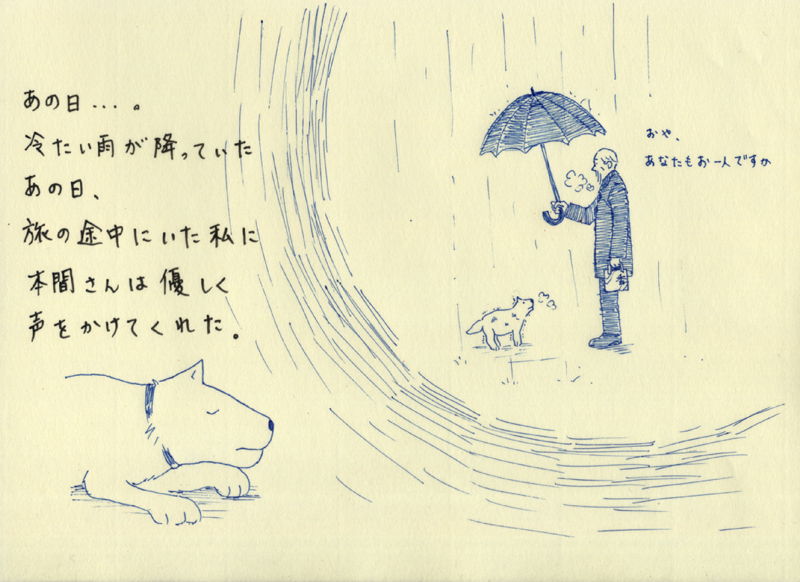 あの日...。
冷たい雨が降っていた
あの日、
旅の途中にいた私に
本間さんは優しく
声をかけてくれた。
おや、
あなたもお一人ですか